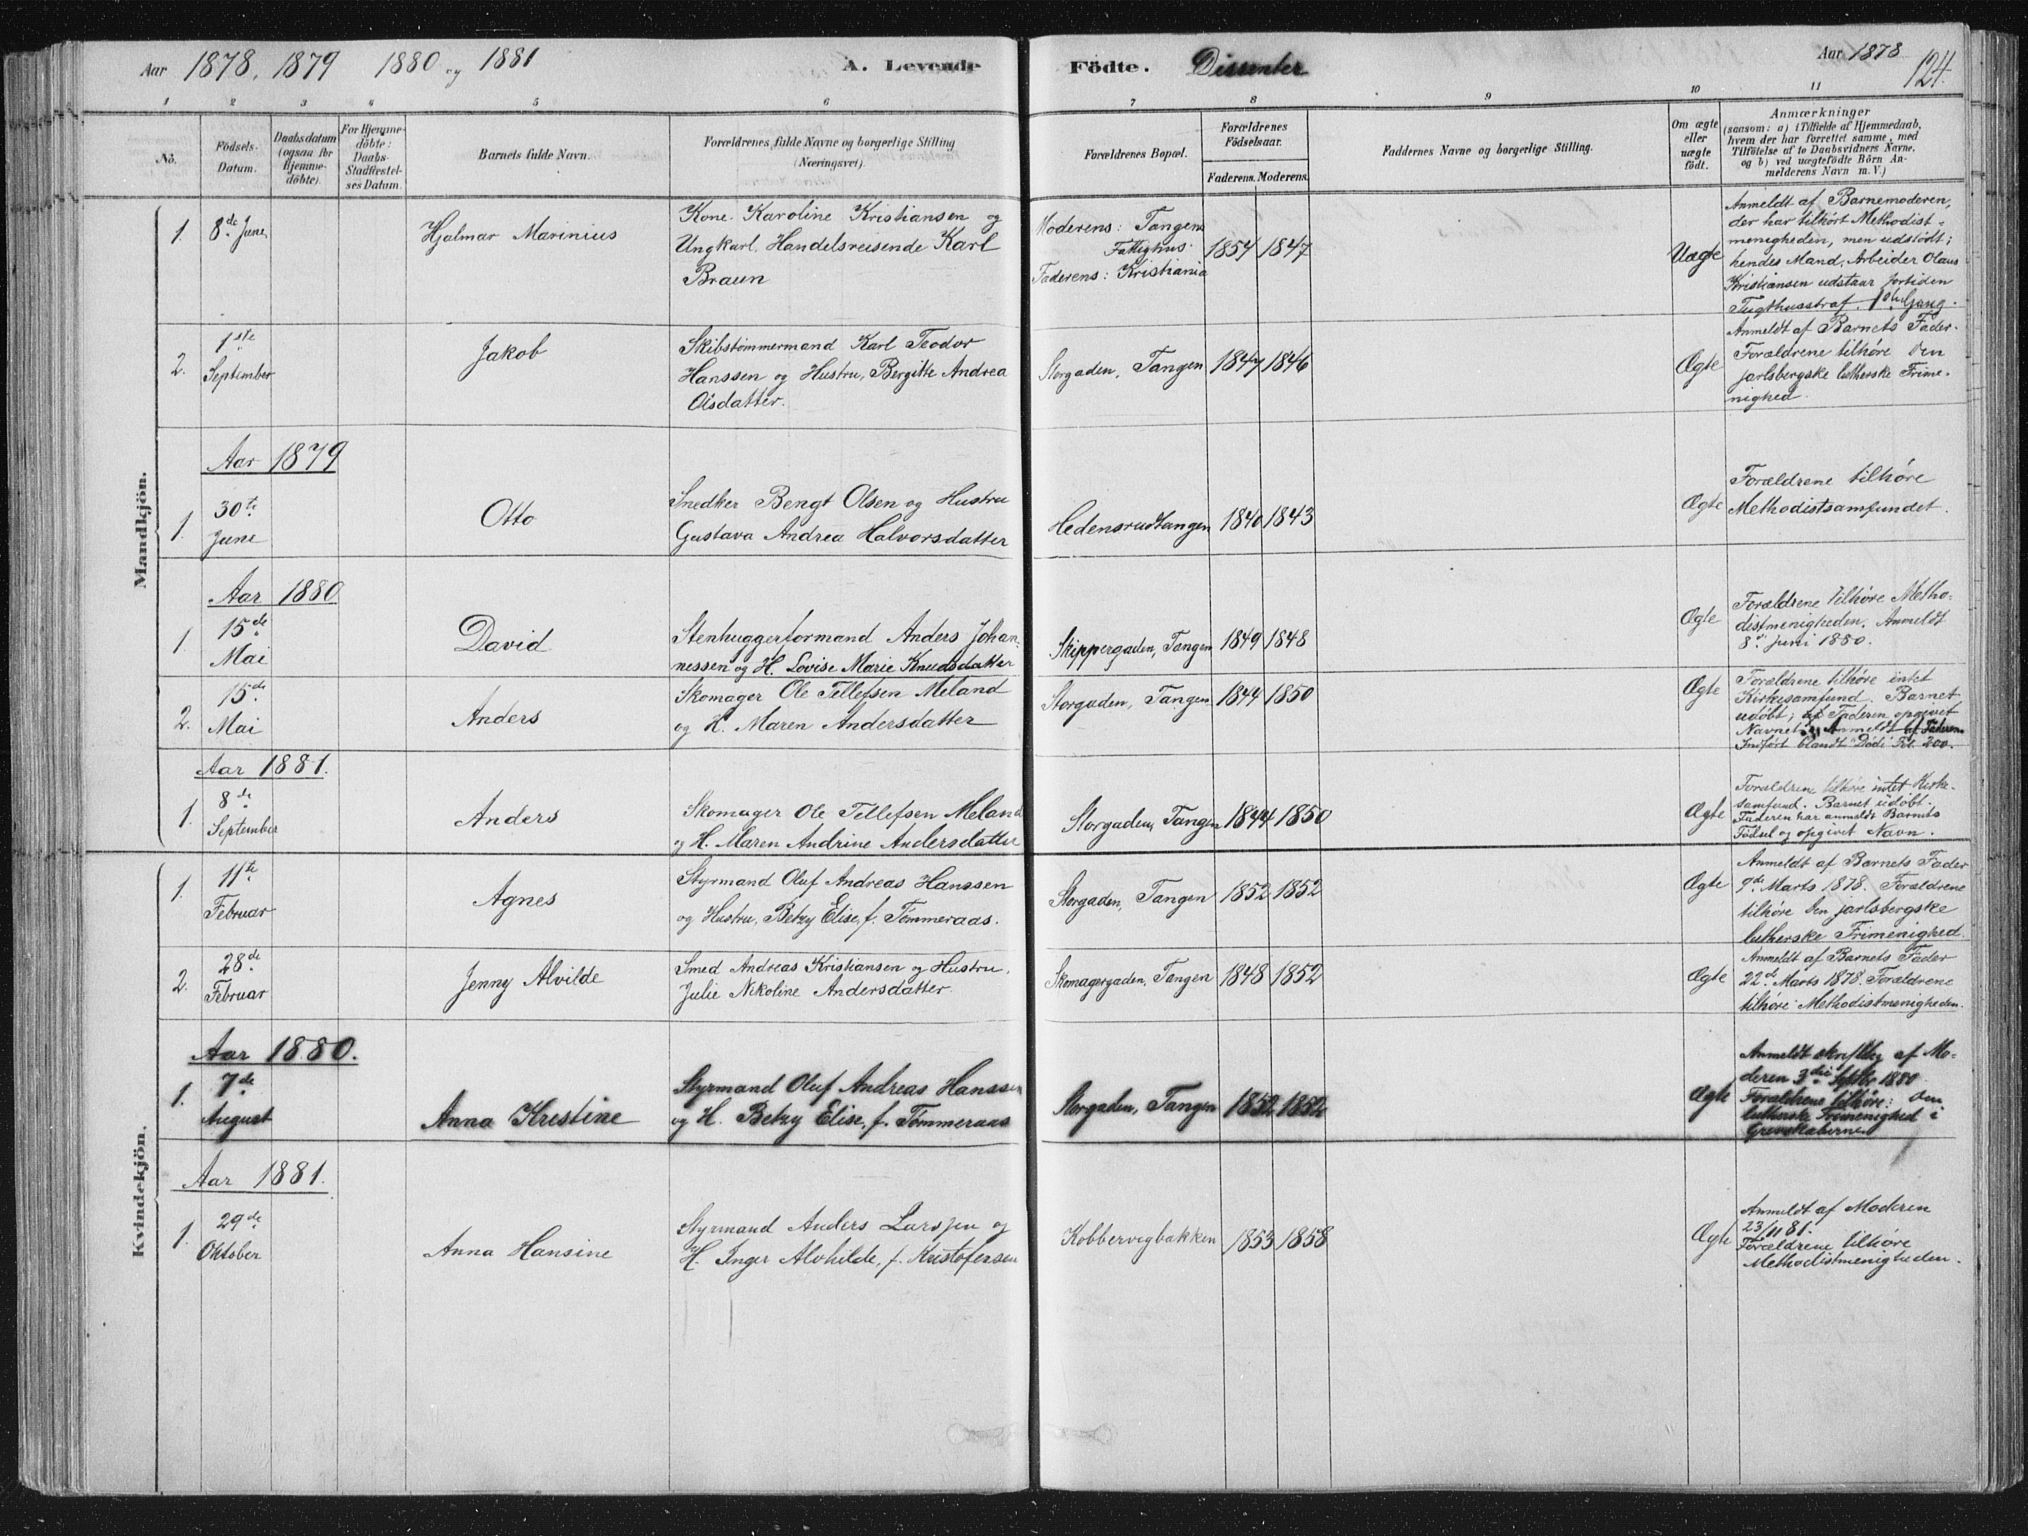 Aar 1878, 1879 1880 og 1881 A. Levende Födte. Dissenter Aar 1878
124.
1 2 3 4 5 6 7 8 9 10 11
No.
Födsels-Datum.
Daabsdatum (ogsaa for Hjemmedöbte).
For Hjemmedöbte: Daabs-Stadfæstelses Datum.
Barnets fulde Navn.
Forældrenes fulde Navne og borgerlige Stilling (Næringsvei).
Forældrenes Bopæl.
Forældrenes Födselsaar.
Faderens. Moderens.
Faddernes Navne og borgerlige Stilling.
Om ægte eller uægte födt.
Anmærkninger
(saasom: a) i Tilfælde af Hjemmedaab, hvem der har forrettet samme, med Tilföielse af to Daabsvidners Navne, og b) ved uægtefödte Börn Anmelderens Navn m. V.)
Mandkjön.
1. 8de June
Hjalmar Marinius
Kone Karoline Kristiansen og
Ungkarl, Handelsreisende Karl
Braun
Moderens: Tangens
Fattighus:
Faderens: Kristiania
1854 1847
Uægte
Anmeldt af Barnemoderen,
der har tilhørt Methodist-
menigheden, men udstødt;
hendes Mand, Arbeider Olaus
Kristiansen udstaar fortiden
Tugthusstraf. 1ste Gang.
2. 1ste
September
Jakob
Skibstømmermand Karl Teodor
Hanssen og Hustru, Bergitte Andrea
Olsdatter.
Storgaden, Tangen 1847 1846
Ægte
Anmeldt af Barnets Fader.
Forældrene tilhøre den
jarlsbergske lutherske Frime-
nighed.
Aar 1879
1. 30te
June
Otto
Snedker Bengt Olsen og Hustru
Gustava Andrea Halvorsdatter
Hedensrudtangen 1840 1843
Ægte
Forældrene tilhøre
Methodistsamfundet.
Aar 1880
1. 15de
Mai
David
Stenhuggerformand Anders Johan-
nessen og H. Lovise Marie Knudsdatter
Skippergaden, Tangen 1849 1848
Ægte
Forældrene tilhøre Metho-
distmenigheden. Anmeldt
8de juni 1880.
2. 15de
Mai
Anders
Skomager Ole Tellefsen Meland
og H. Maren Andersdatter
Storgaden, Tangen 1844 1850
Ægte
Forældrene tilhøre intet
Kirkesamfund. Barnet
udøbt; af Faderen opgivet
Navnet. Anmeldt af Faderen
Indført blandt Døde Fol. 200.
Aar 1881.
1. 8de
September
Anders
Skomager Ole Tellefsen Meland
og H. Maren Andrine Andersdatter
Storgaden, Tangen 1844 1850
Ægte
Forældrene tilhøre intet Kirke-
samfund. Barnet udøbt.
Faderen har anmeldt Barnets
Fødsel og opgivet Navn.
Kvindekjön.
1. 11te
Februar
Agnes
Styrmand Oluf Andreas Hanssen
og Hustru, Betzy Elise, f. Tømmeraas.
Storgaden, Tangen 1852 1852
Ægte
Anmeldt af Barnets Fader
9de Marts 1878. Forældrene
tilhøre den jarlsbergske
lutherske Frimenighed.
2. 28de
Februar
Jenny Alvilde
Smed Andreas Kristiansen og Hustru,
Julie Nikoline Andersdatter
Skomagergaden, Tangen 1848 1852
Ægte
Anmeldt af Barnets Fader
22de Marts 1878. Forældrene
tilhøre Methodistmenigheden.
Aar 1880.
1. 7de
August
Anna Kristine
Styrmand Oluf Andreas Hanssen
og H. Betzy Elise, f. Tømmeraas
Storgaden, Tangen 1852 1852
Ægte
Anmeldt skriftlig af Mo-
deren 3die Septbr 1880.
Forældrene tilhøre: den
lutherske Frimenighed i
Grevskaberne
Aar 1881.
1. 29de
Oktober
Anna Hansine
Styrmand Anders Larssen og
H. Inger Alvhilde, f. Kristofersen
Kobbervigbakken 1853 1858
Ægte
Anmeldt af Moderen
23/11 81.
Forældrene tilhøre
Methodistmenigheden.